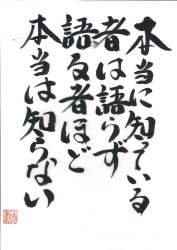 本当に知っている
者は語らず
語る者ほど
本当は知らない